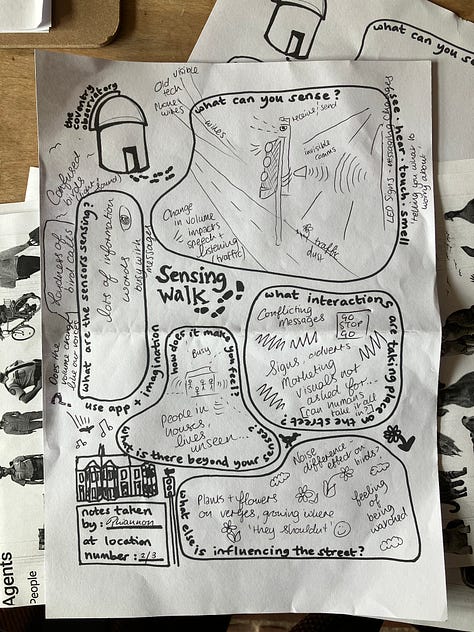 the coventry
observatory
Old visible
tech
Phone
wires
wires
what can you sense?
see • hear • touch • smell
receive/send
invisible
comms
LED Signs - messaging changes
'telling you what to
worry about'
Change
in volume
impacts
speech +
listening
(traffic)
traffic
Confused
birds
Loudness of
bird calls
Does the
volume change
like our voices
?
what are the sensors sensing?
lots of information
words
busy with
messages
Sensing
walk
use app + imagination
how does it make you feel?
Busy
People in
houses,
lives
unseen...
what is there beyond your senses?
what interactions are taking place on the street?
Conflicting
Messages
GO
STOP
GO
Signs, adverts
Marketing
visuals not
asked for...
[can humans
take it all
in?]
tools
notes taken
by: Rhiannon
at location
number: 2/3
what else is influencing the street?
Noise
difference -
effect on
birds?
Plants + flowers
on verges, growing where
'they shouldn't'
feeling
of
being
watched
what can you sen
Agents
People